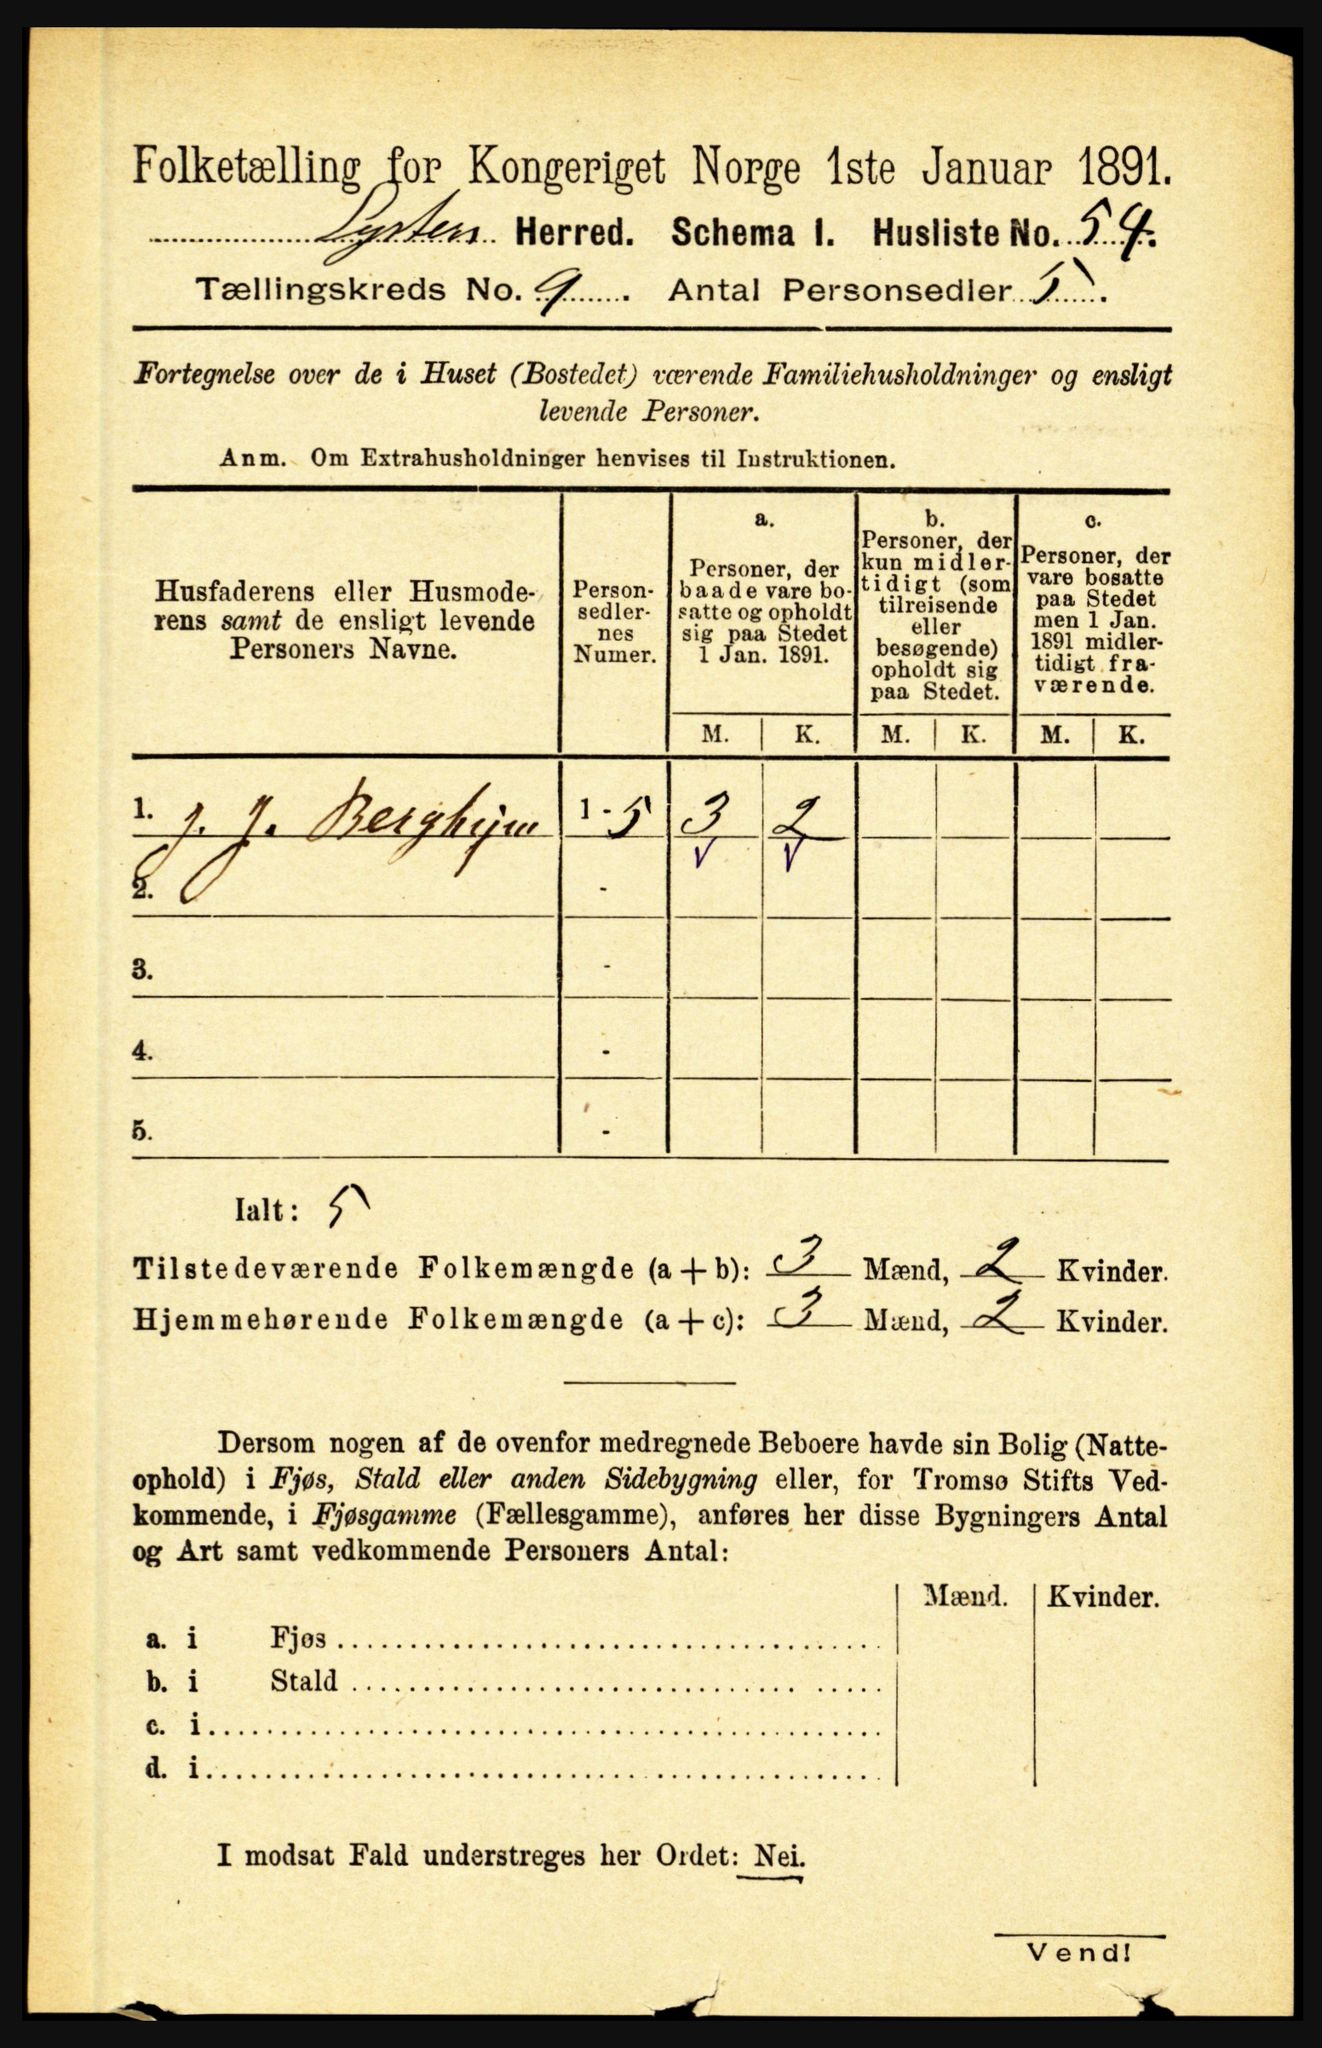 Folketælling for Kongeriget Norge 1ste Januar 1891.
Lyster Herred. Schema I. Husliste No. 54.
Tællingskreds No. 9. Antal Personsedler 5.
Fortegnelse over de i Huset (Bostedet) værende Familiehusholdninger og ensligt
levende Personer.
Anm. Om Extrahusholdninger henvises til Instruktionen.
Husfaderens eller Husmode-
rens samt de ensligt levende
Personers Navne.
Person-
sedler-
nes
Numer.
a.
Personer, der
baade vare bo-
satte og opholdt
sig paa Stedet
1 Jan. 1891.
b.
Personer, der
kun midler-
tidigt (som
tilreisende
eller
besøgende)
opholdt sig
paa Stedet.
c.
Personer, der
vare bosatte
paa Stedet
men 1 Jan.
1891 midler-
tidigt fra-
værende.
M. K. M. K. M. K.
1. J. J. Berghejm 1 - 5 3 2
2. -
3. -
4. -
5. -
Ialt: 5
Tilstedeværende Folkemængde (a + b): 3 Mænd, 2 Kvinder.
Hjemmehørende Folkemængde (a + c): 3 Mænd, 2 Kvinder.
Dersom nogen af de ovenfor medregnede Beboere havde sin Bolig (Natte-
ophold) i Fjøs, Stald eller anden Sidebygning eller, for Tromsø Stifts Ved-
kommende, i Fjøsgamme (Fællesgamme), anføres her disse Bygningers Antal
og Art samt vedkommende Personers Antal:
Mænd. Kvinder.
a. i Fjøs
b. i Stald
c. i
d. i
I modsat Fald understreges her Ordet: Nei.
Vend!